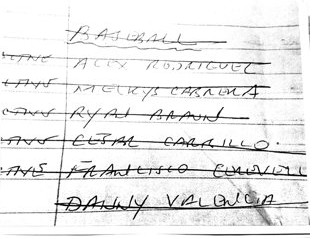 BASEBALL
ALEX RODRIGUEZ
MELKYS CABRERA
RYAN BRAUN
CESAR CARRILLO
FRANCISCO
DANNY VALENCIA